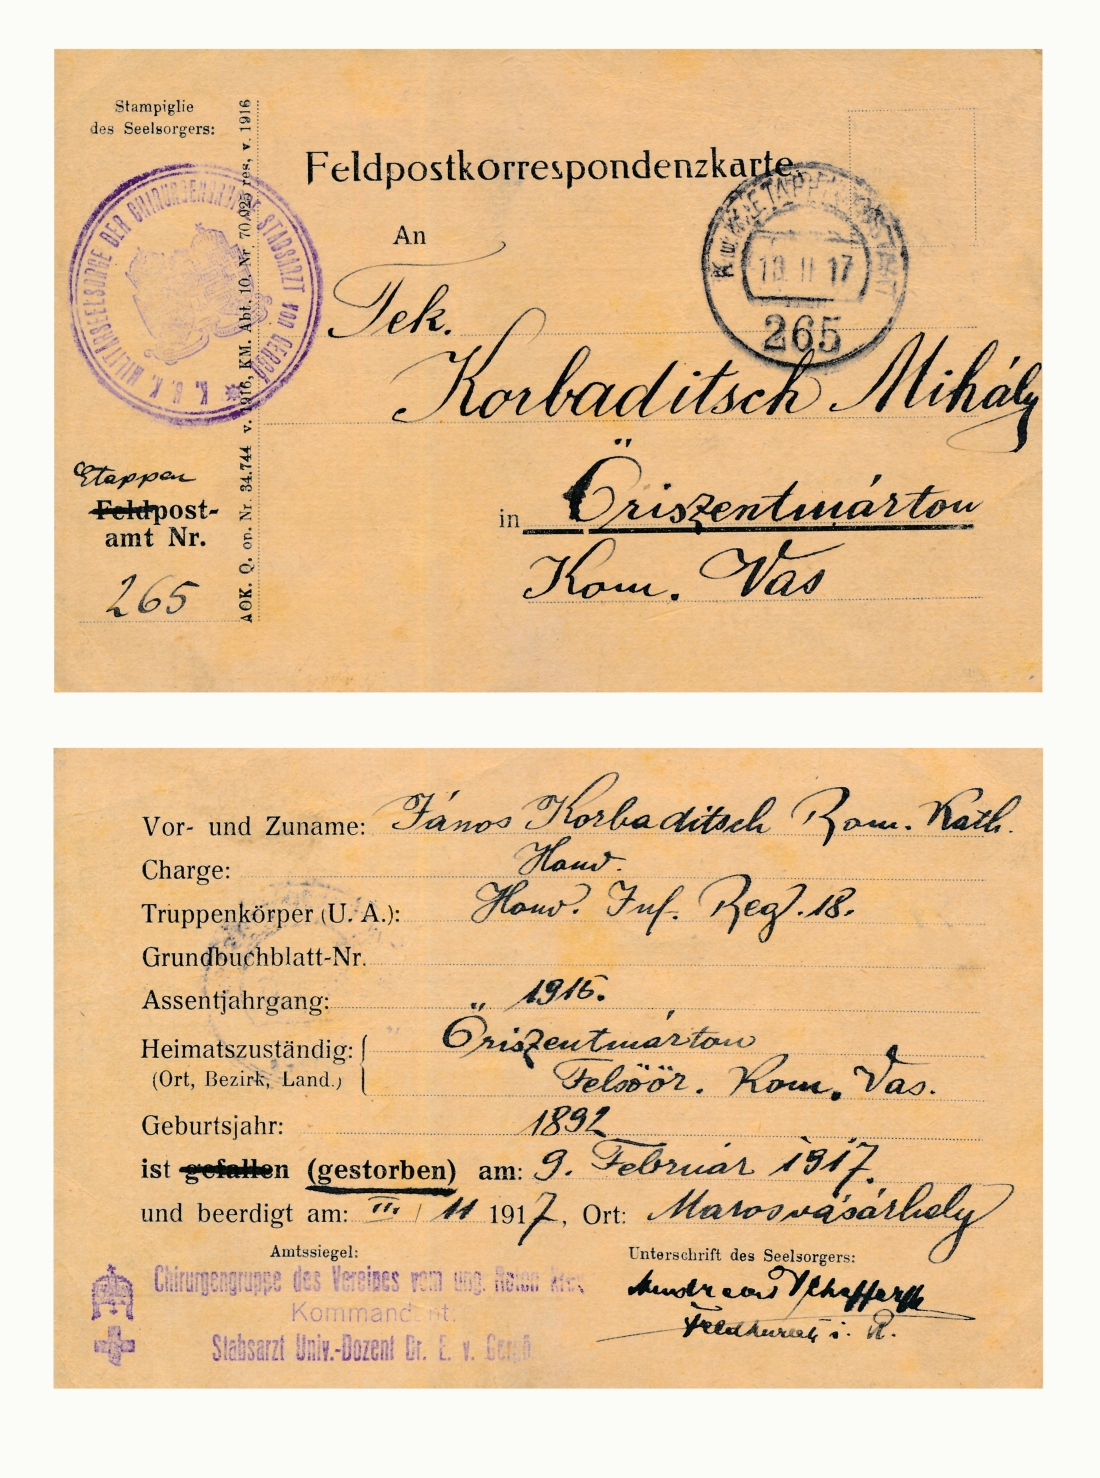 Stampiglie
des Seelsorgers:
AOK. Q. op. Nr. 34.744 v. 1916, KM. Abt. 10. Nr 70.925 res. v. 1916
Feldpostkorrespondenzkarte
An
K. u. K. MILITÄRSEELSORGE DER CHIRURGENGRUPPE STABSARZT von GERGÖ
K. u. K. ETAPPENPOSTAMT
10. II 17
265
Tek.
Korbaditsch Mihály
in Őriszentmárton
Kom. Vas
Etappen
Feldpost-
amt Nr.
265
Vor- und Zuname: János Korbaditsch Rom. Kath.
Charge: Honv.
Truppenkörper (U. A.): Honv. Inf. Reg. 18.
Grundbuchblatt-Nr.
Assentjahrgang: 1915.
Heimatszuständig: Őriszentmárton
(Ort, Bezirk, Land.) Felsőőr. Kom. Vas.
Geburtsjahr: 1892
ist gefallen (gestorben) am: 9. Februar 1917.
und beerdigt am: 11 1917, Ort: Marosvásárhely
Amtssiegel: Unterschrift des Seelsorgers:
Chirurgengruppe des Vereines vom ung. Roten Kreuz
Kommandant:
Stabsarzt Univ.-Dozent Dr. E. v. Gergö
Feldkurat i. R.